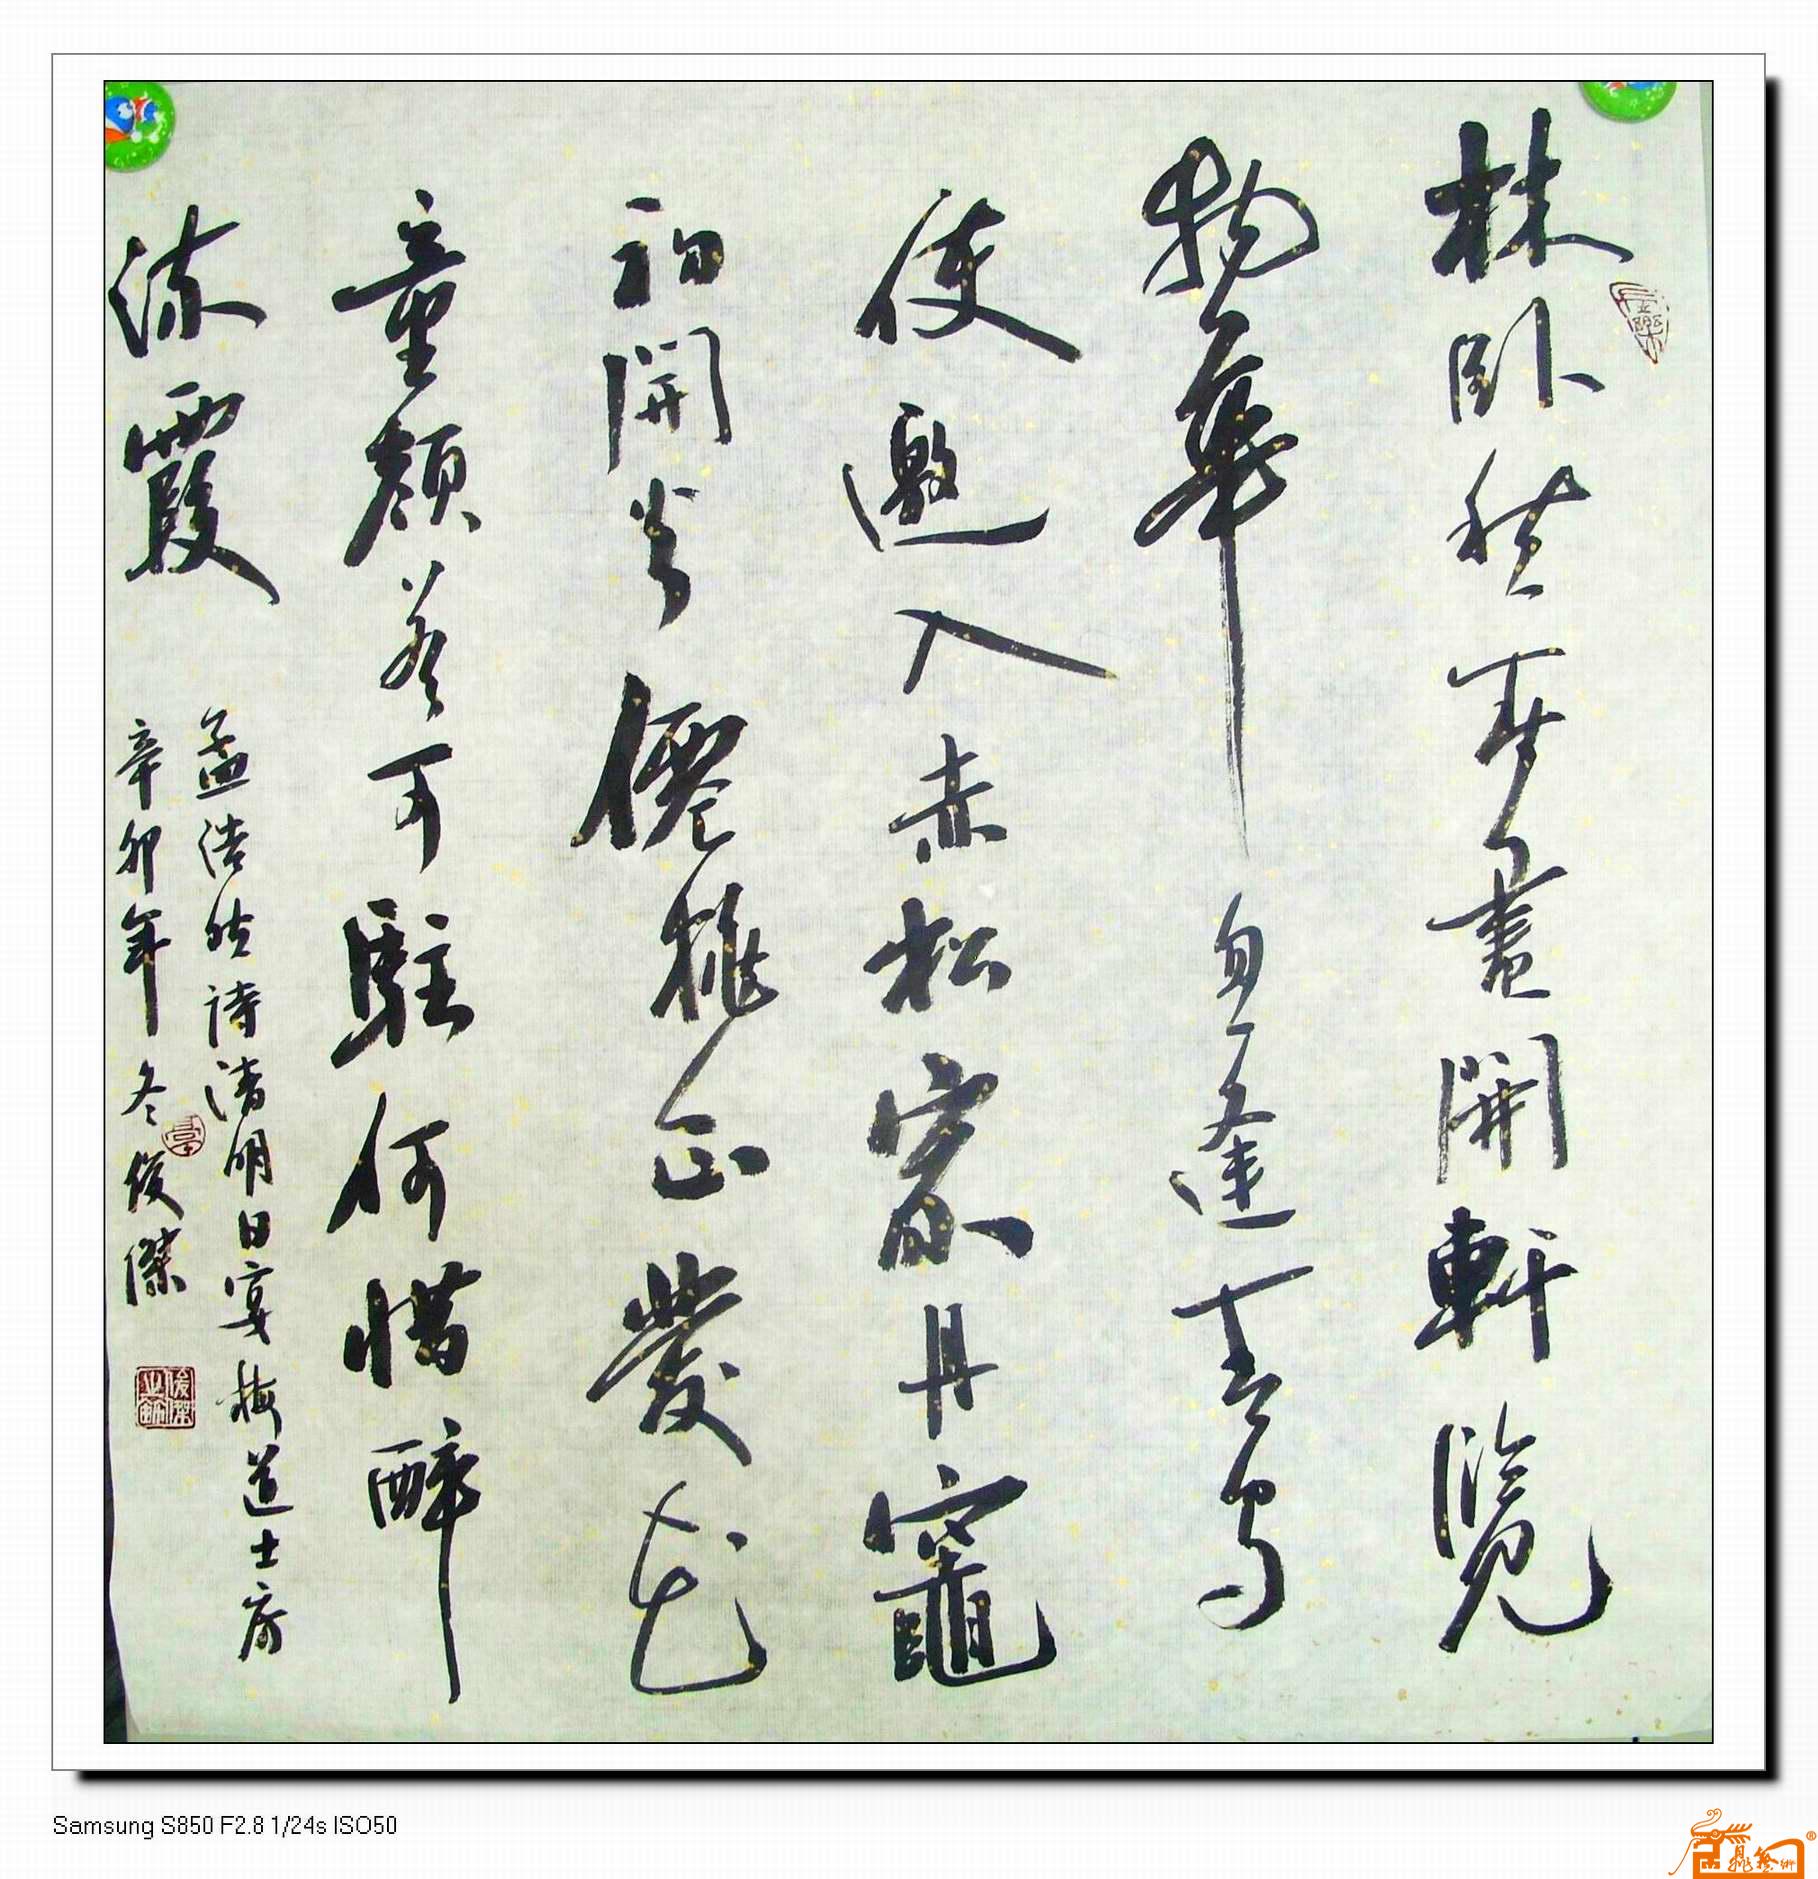 林卧愁春盡開軒覽
物華忽逢青鳥
使邀入赤松家丹竈
初開火僊桃正發花
童顏若可駐何惜醉
流霞
孟浩然詩清明日宴梅道士房
辛卯年冬俊傑
Samsung S850 F2.8 1/24s ISO50